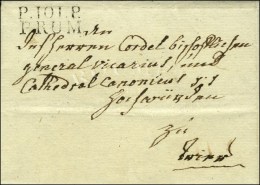 P.101.P.
PRUM
An
des Herren Cordel bischöfflichen
general vicarius, und
Cathedral Canonicus
Hochwürden
zu
Trier